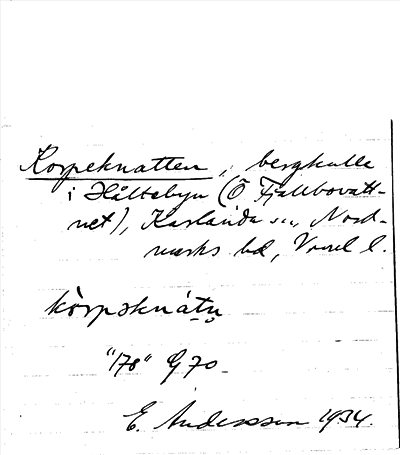 Korpeknatten, bergkulle
i Håltebyn (Ö Fjällbovatt-
net), Karlanda sn, Nord-
marks hd, Vrml l.
kòrpəknátn̥
"178" G70
E. Andersson 1934.